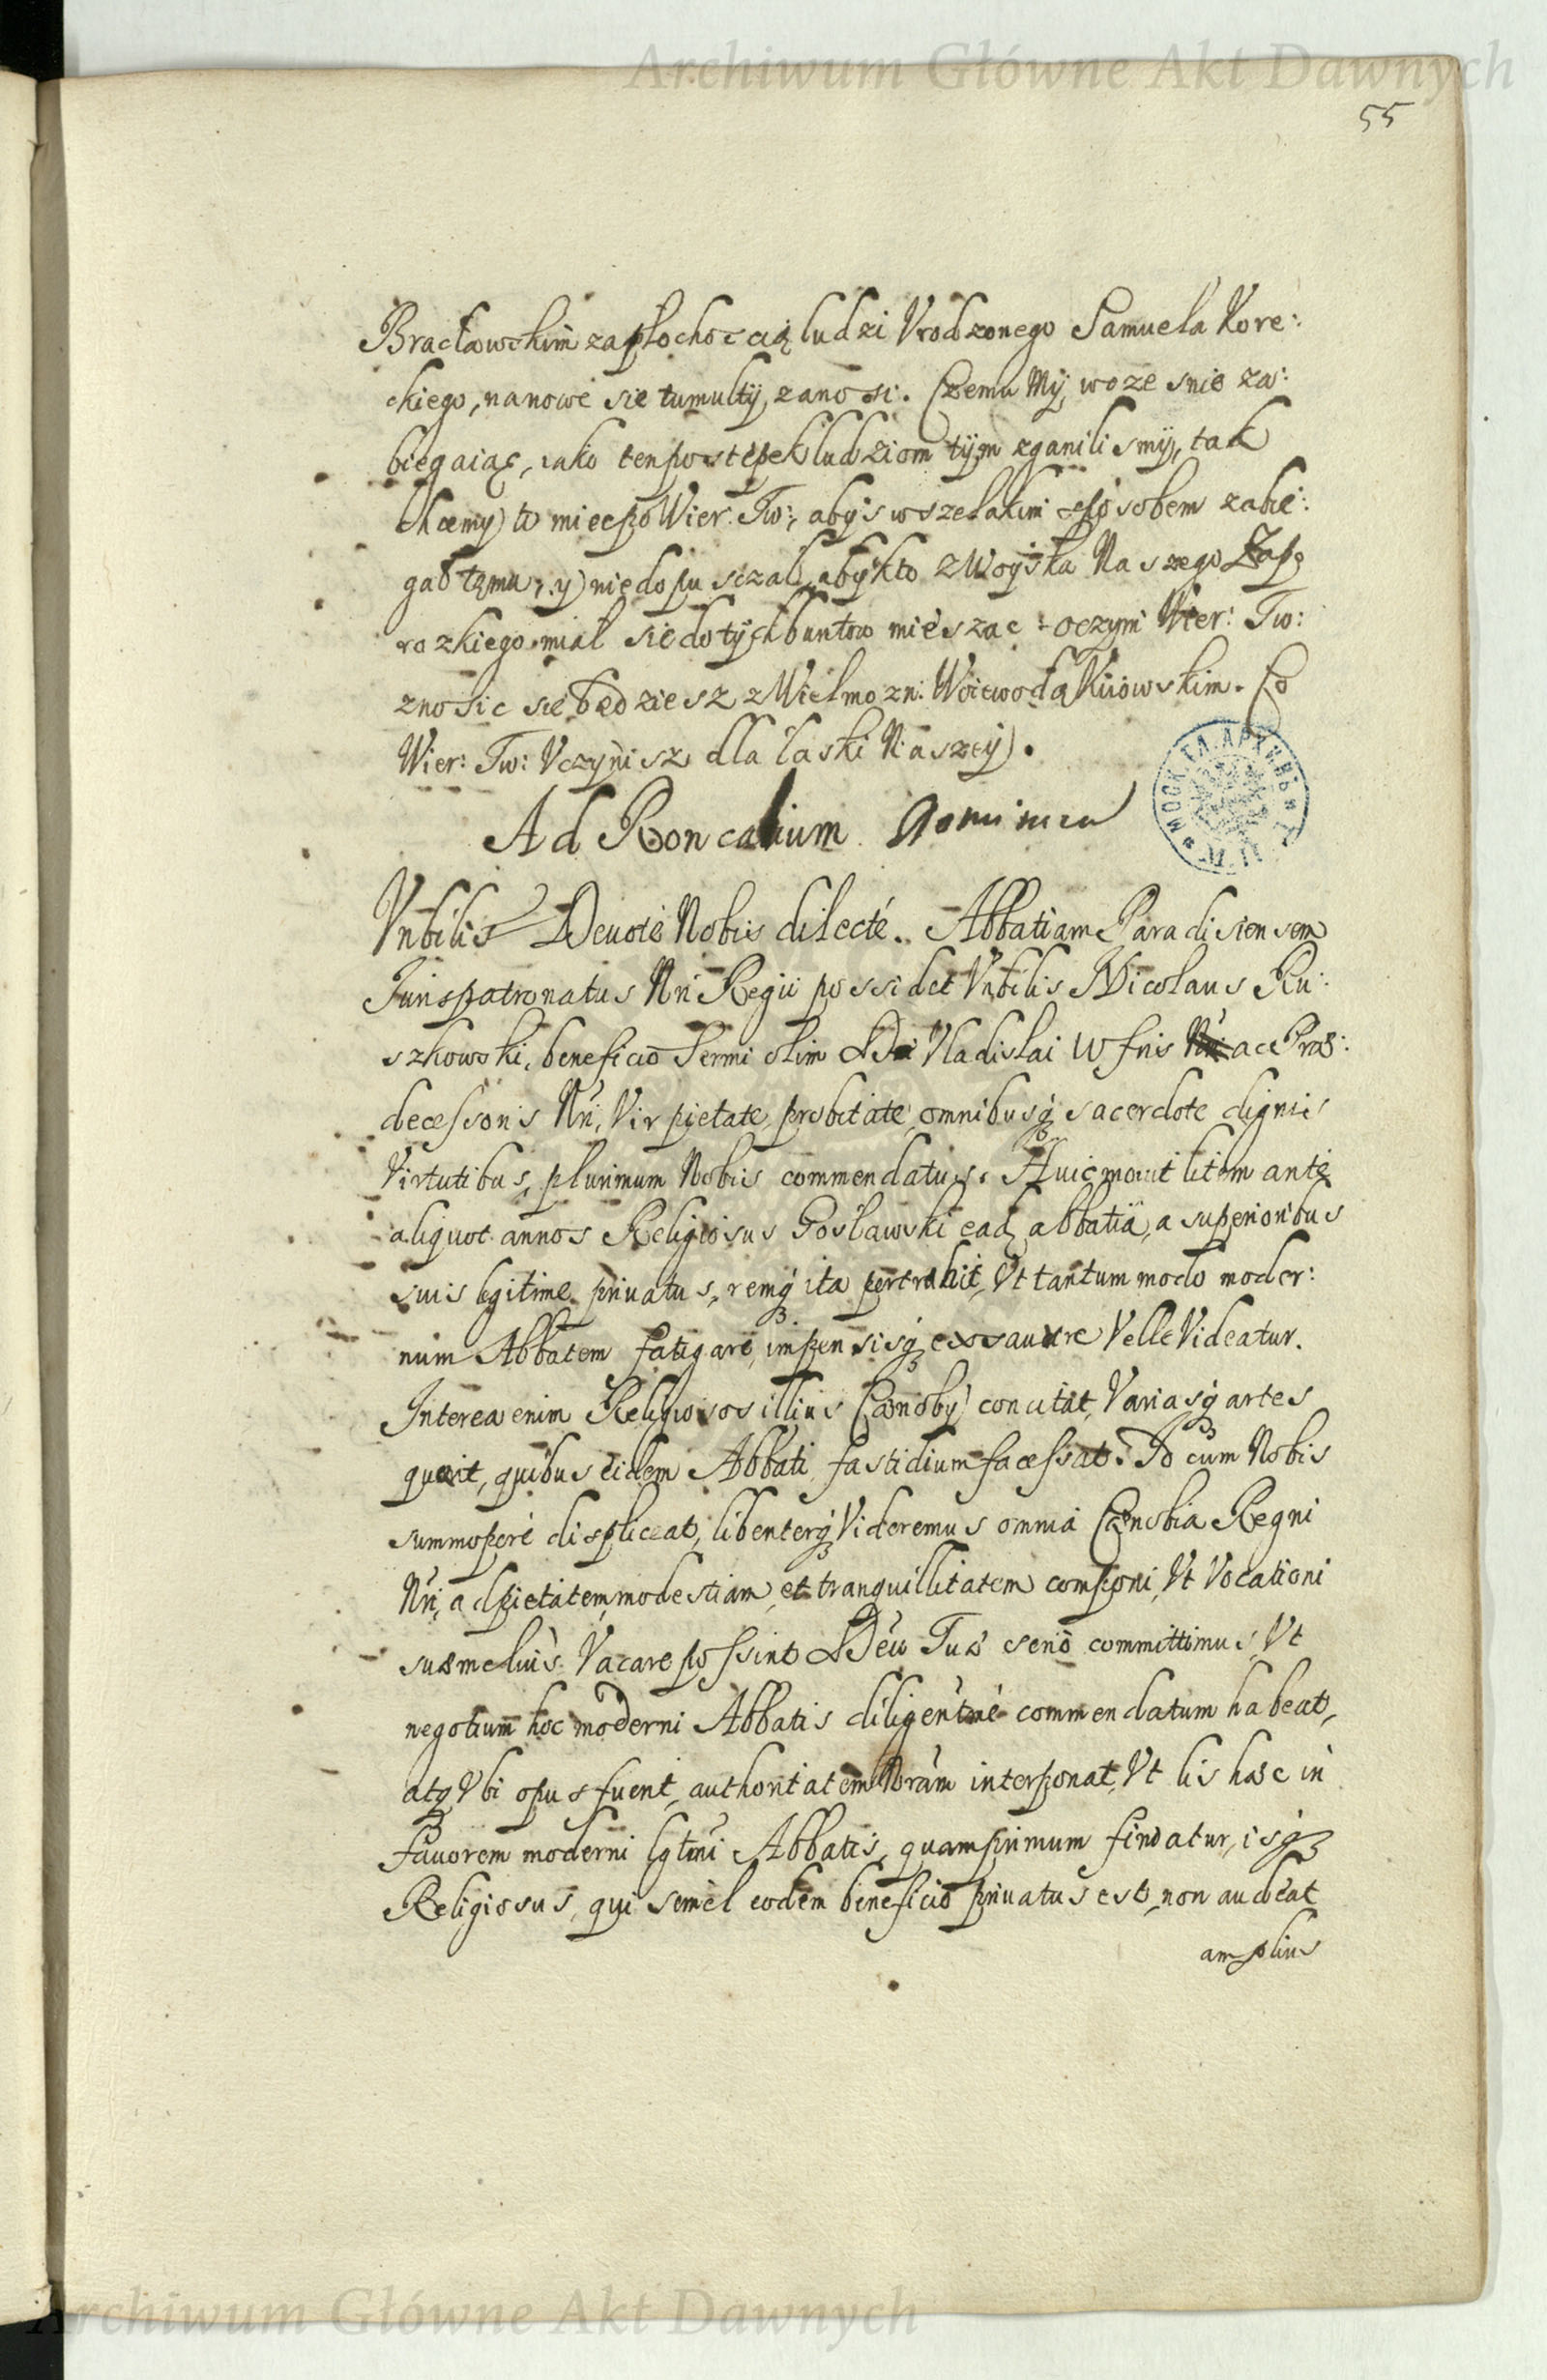 Archiwum Główne Akt Dawnych
55
Bracławskim zapłochoscią ludzi Vrodzonego Samuela Kore:
ckiego, nanowe sie tumulty, zanosi. Czemu My, wczesnie za:
biegaiąc, iako ten postępek ludziom tym zganilismy, tak
chcemy to miec po Wier: Tw:, abys wszelakim sposobem zabie:
gał temu, y niedopusczał, aby kto z Woyska Naszego Zapo
rozkiego miał sie do tych buntow mieszac: oczym Wier: Tw:
znosic sie będziesz z Wielmozn: Woiewodą Kiiowskim. Co
Wier: Tw: Vczynisz dla łaski Naszey.
Ad Roncalium
МОСК. ГЛ. АРХИВЪ
Vnbilis Deuote Nobis dilecte. Abbatiam Paradisiensem
Jurispatronatus Nri Regii possidet Vnbilis Nicolaus Ru:
szkowski, beneficio Sermi olim DD Vladislai IV fris Nri ac Præ:
decessoris Nri, Vir pietate, probitate, omnibusq sacerdote dignis
Virtutibus, plurimum Nobis commendatus. Huic mouit litem ante
aliquot annos Religiosus Gosławski ead abbatia, a superioribus
suis legitime priuatus, remq ita pertrahit, Vt tantum modo moder:
num Abbatem fatigare, impensisq exhaurire Velle Videatur.
Interea enim Religiosos illius Cænoby concitat, Variasq artes
quærit, quibus eidem Abbati fastidium facessat. Id cum Nobis
summopere displiceat, libenterq Videremus omnia Cænobia Regni
Nri, ad pietatem, modestiam, et tranquillitatem componi, Vt Vocationi
suæ melius Vacare possint Deu Tuæ serio committimus, Vt
negotium hoc moderni Abbatis diligentme commendatum habeat,
atq Vbi opus fuerit, authoritatem Nram interponat, Vt lis hæc in
fauorem moderni lgtmi Abbatis, quamprimum finiatur, isq
Religiosus, qui semel eodem beneficio priuatus est, non audeat
amplius
Archiwum Główne Akt Dawnych